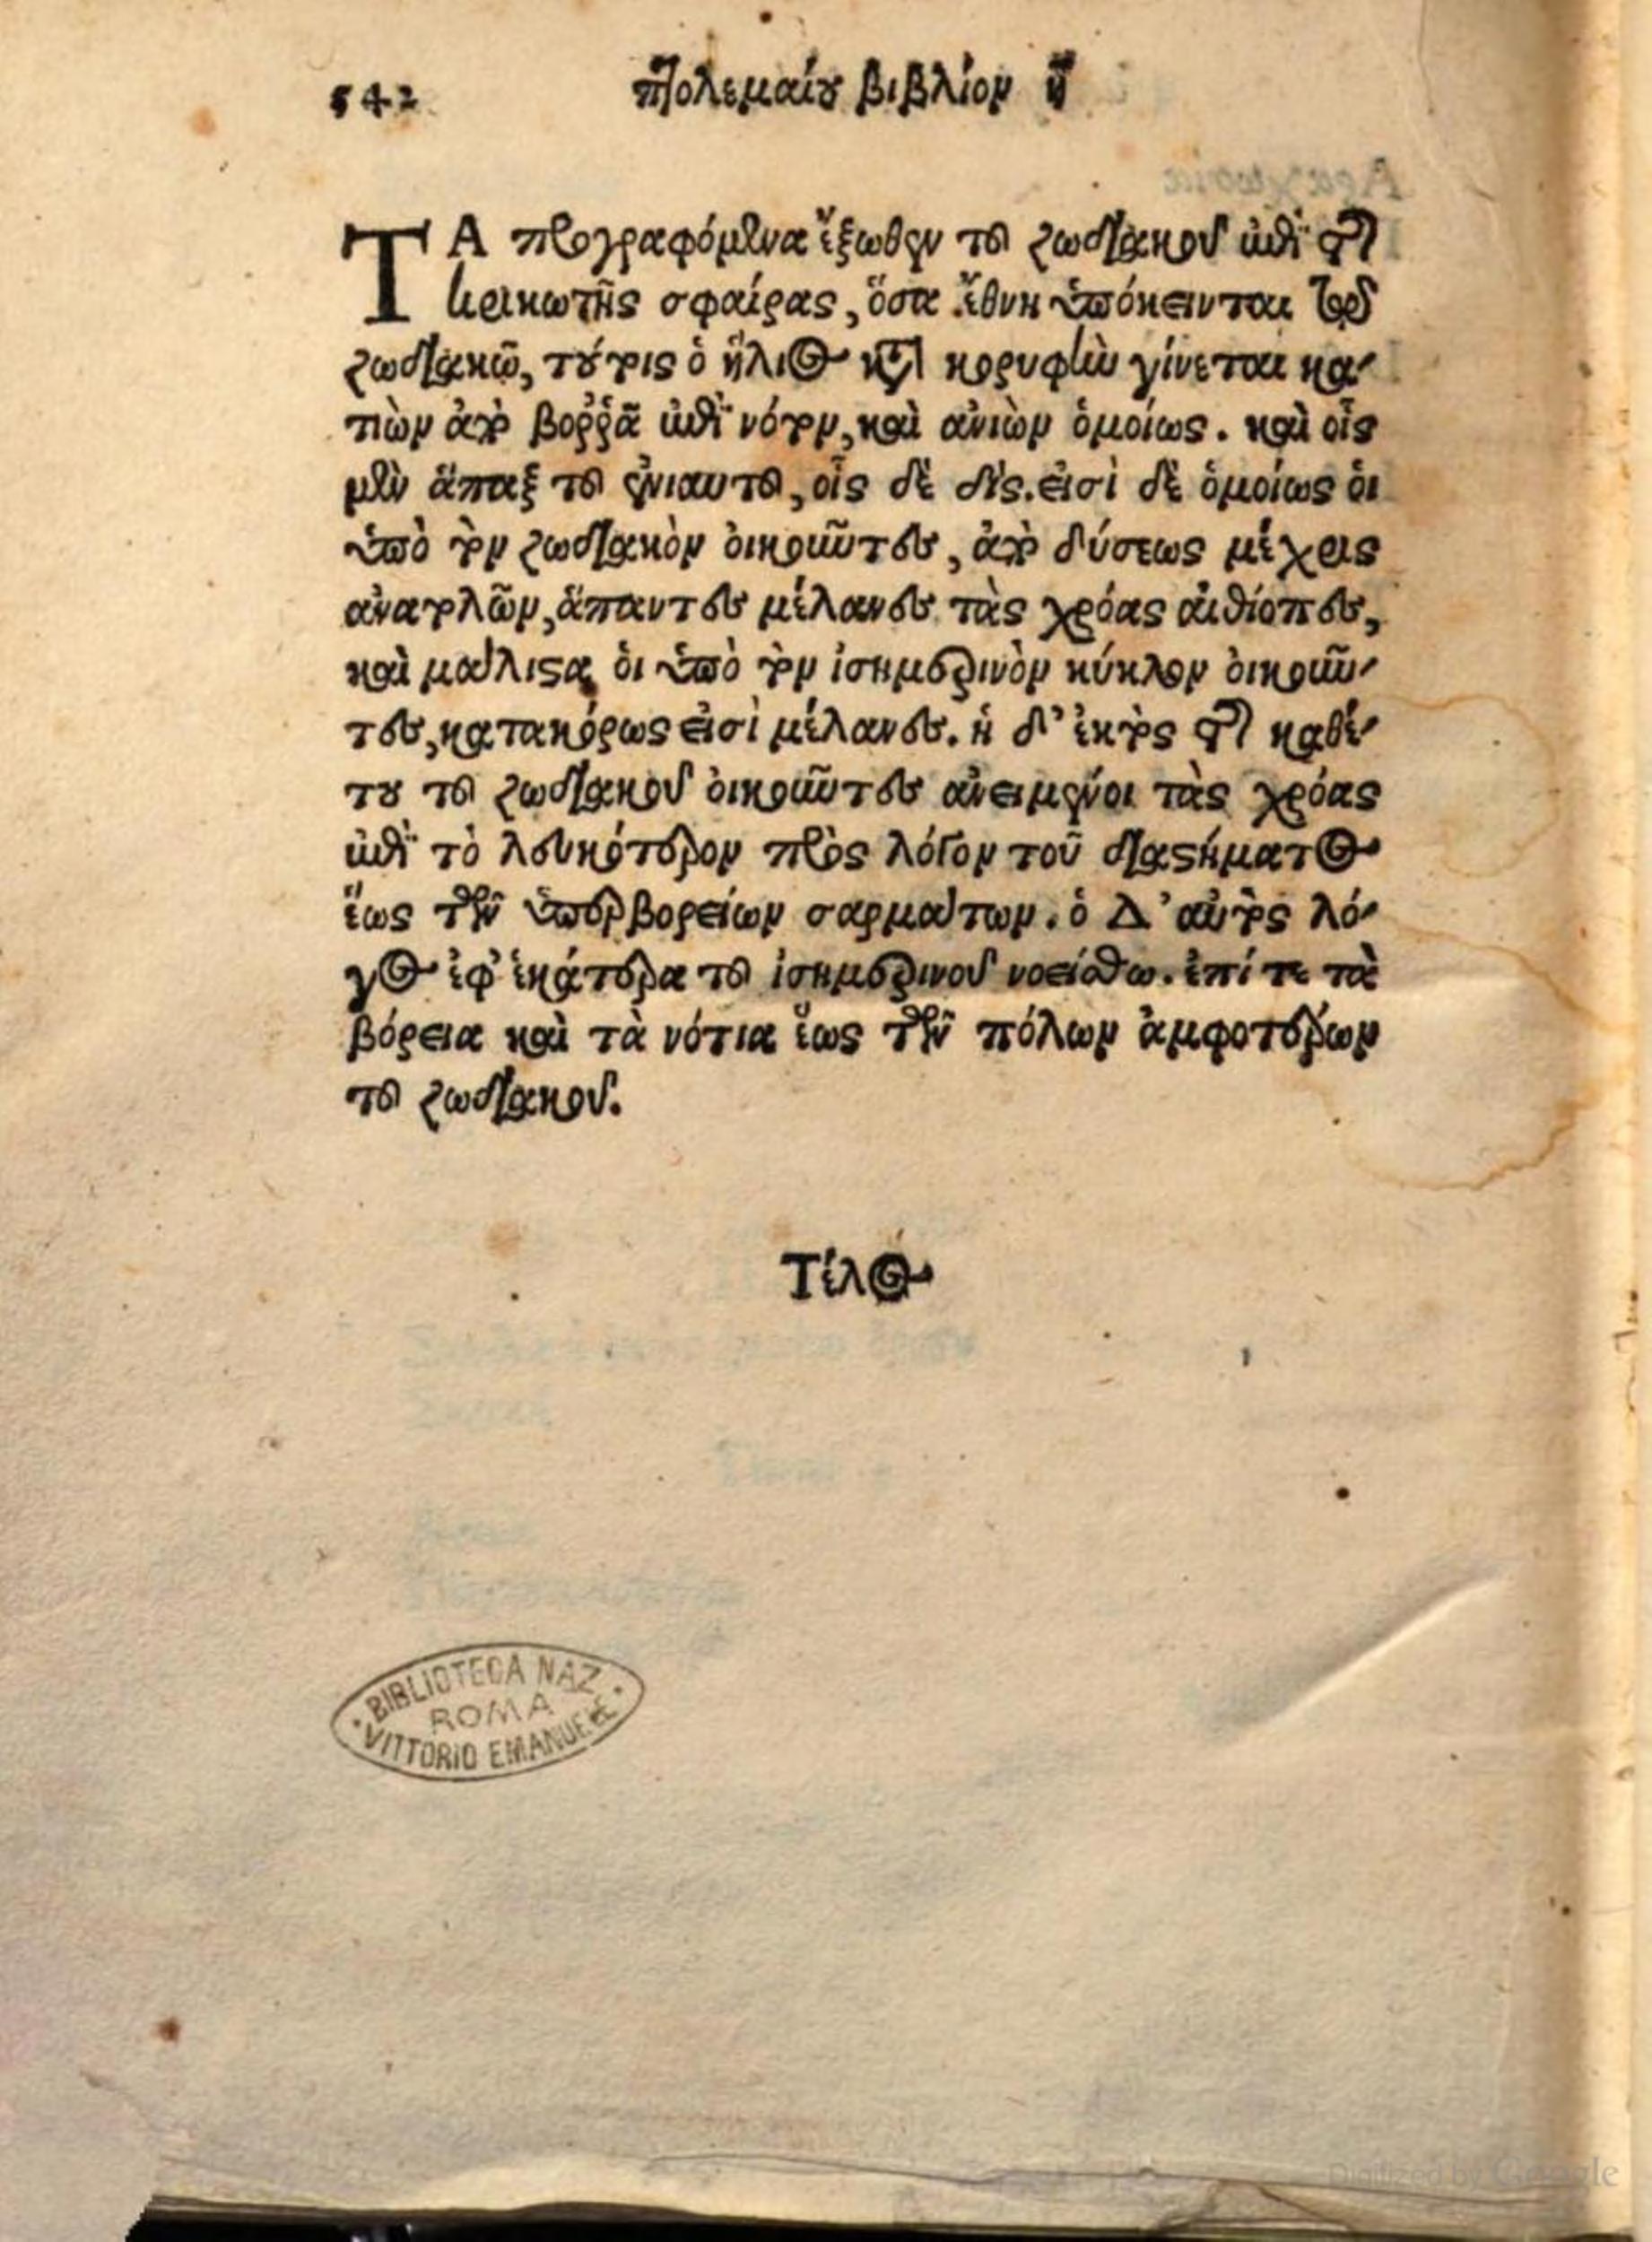 542 πτολεμαίου βιβλίον η
ΤΑ προγραφόμενα ἔξωθεν τοῦ ζωδιακοῦ ἐπὶ τῆς
κρικωτῆς σφαίρας, ὅσα ἔθνη ὑπόκεινται τῷ
ζωδιακῷ, τούτοις ὁ ἥλιος κατὰ κορυφὴν γίνεται κα-
τιὼν ἀπὸ βορρᾶ ἐπὶ νότον, καὶ ἀνιὼν ὁμοίως. καὶ οἷς
μὲν ἅπαξ τοῦ ἐνιαυτοῦ, οἷς δὲ δίς. εἰσὶ δὲ ὁμοίως οἱ
ὑπὸ τὸν ζωδιακὸν οἰκοῦντες, ἀπὸ δύσεως μέχρις
ἀνατολῶν, ἅπαντες μέλανες τὰς χρόας αἰθίοπες,
καὶ μάλιστα οἱ ὑπὸ τὸν ἰσημερινὸν κύκλον οἰκοῦν-
τες, κατακόρως εἰσὶ μέλανες. ἡ δ' ἐκτὸς τῆς καθέ-
του τοῦ ζωδιακοῦ οἰκοῦντες ἀνειμένοι τὰς χρόας
ἐπὶ τὸ λευκότερον πρὸς λόγον τοῦ διαστήματος
ἕως τῶν ὑπερβορείων σαρματων. ὁ Δ' αὐτὸς λό-
γος ἐφ' ἑκάτερα τοῦ ἰσημερινοῦ νοείσθω. ἐπί τε τὰ
βόρεια καὶ τὰ νότια ἕως τῶν πόλων ἀμφοτέρων
τοῦ ζωδιακοῦ.
Τέλος
BIBLIOTECA NAZ.
ROMA
VITTORIO EMANUELE
Digitized by Google